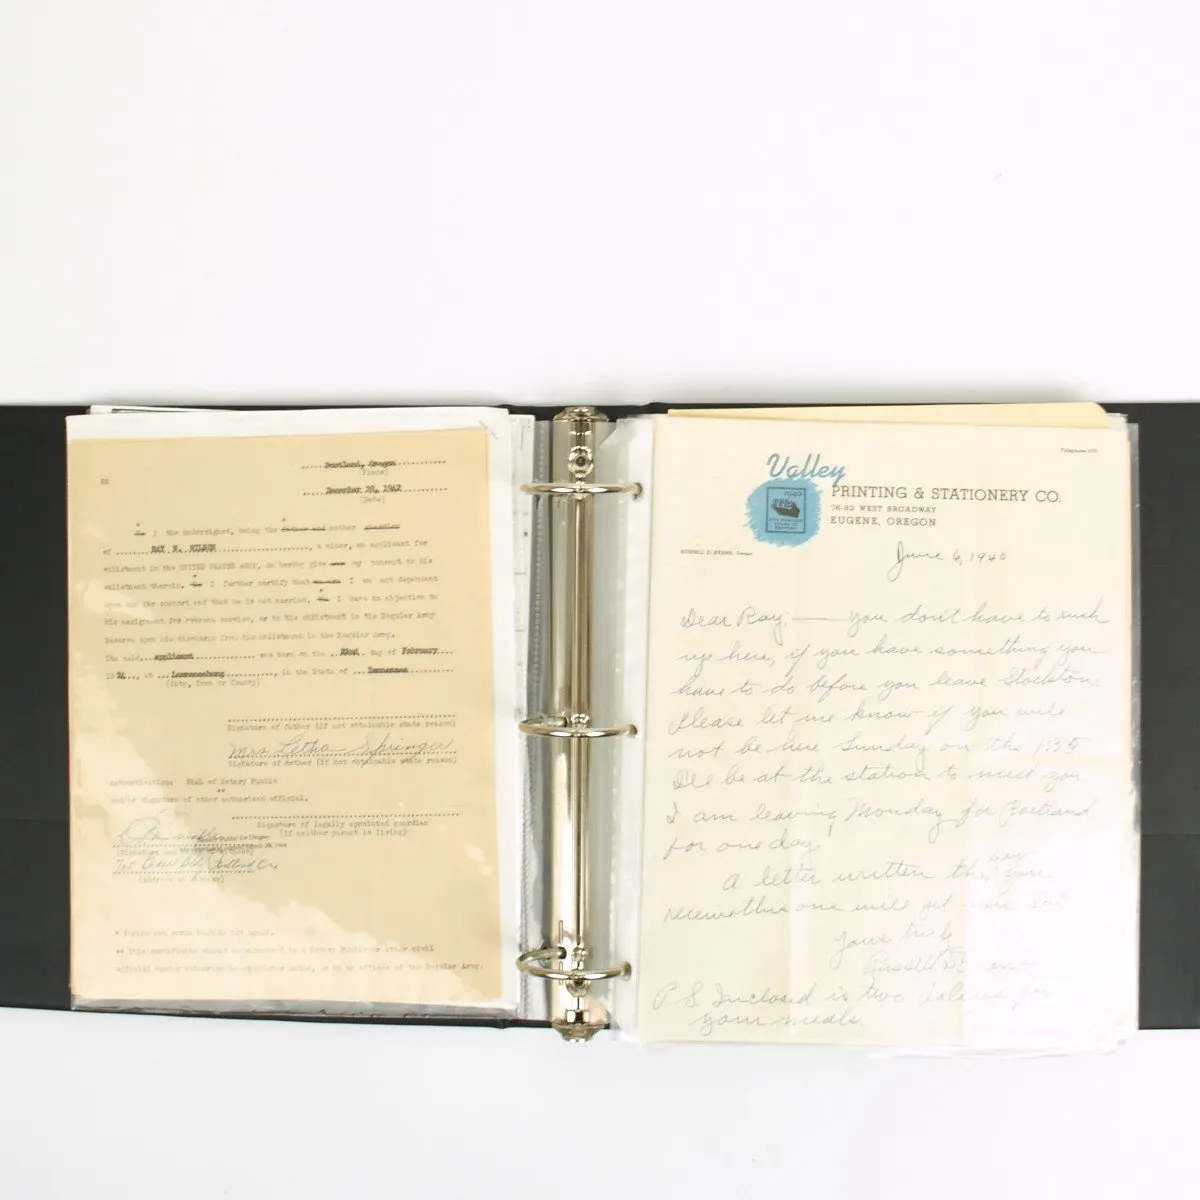 Portland, Oregon
(Place)
RN
December 28, 1942
(Date)
We I the undersigned, being the father and mother guardian
of RAY E. WILSON, a minor, an applicant for
enlistment in the UNITED STATES ARMY, do hereby give our my consent to his
enlistment therein. We I further certify that I am not dependent
upon him for support and that he is not married. We I have no objection to
his assignment for oversea service, or to his enlistment in the Regular Army
Reserve upon his discharge from his enlistment in the Regular Army.
The said applicant was born on the 22nd day of February
19 24, at Lawrenceburg, in the State of Tennessee
(City, Town or County)
Signature of father (if not obtainable state reason)
Mrs Letha Springer
Signature of mother (if not obtainable state reason)
Authentication: SEAL of Notary Public
**
and/or signature of other authorized official.
Signature of legally appointed guardian
(If neither parent is living)
Notary Public for Oregon
(Signature and
Bldg Portland Ore
(Address of
* Strike out words that do not apply.
** This certificate should be authenticated by a Notary Public or other civil
official under authority to administer oaths, or by an officer of the Regular Army.
Telephone 470
Valley
PRINTING & STATIONERY CO.
76-82 WEST BROADWAY
EUGENE, OREGON
1940
RUSSELL D. EVANS, Owner
June 6, 1940
Dear Ray; — you don't have to rush
up here, if you have something you
have to do before you leave Stockton.
Please let me know if you will
not be here Sunday on the 1:35
I'll be at the station to meet you
I am leaving Monday for Portland
for one day.
A letter written the day you
receive this one will get here
Yours truly
Russell D E
P S Inclosed is two dollars for
your meals.